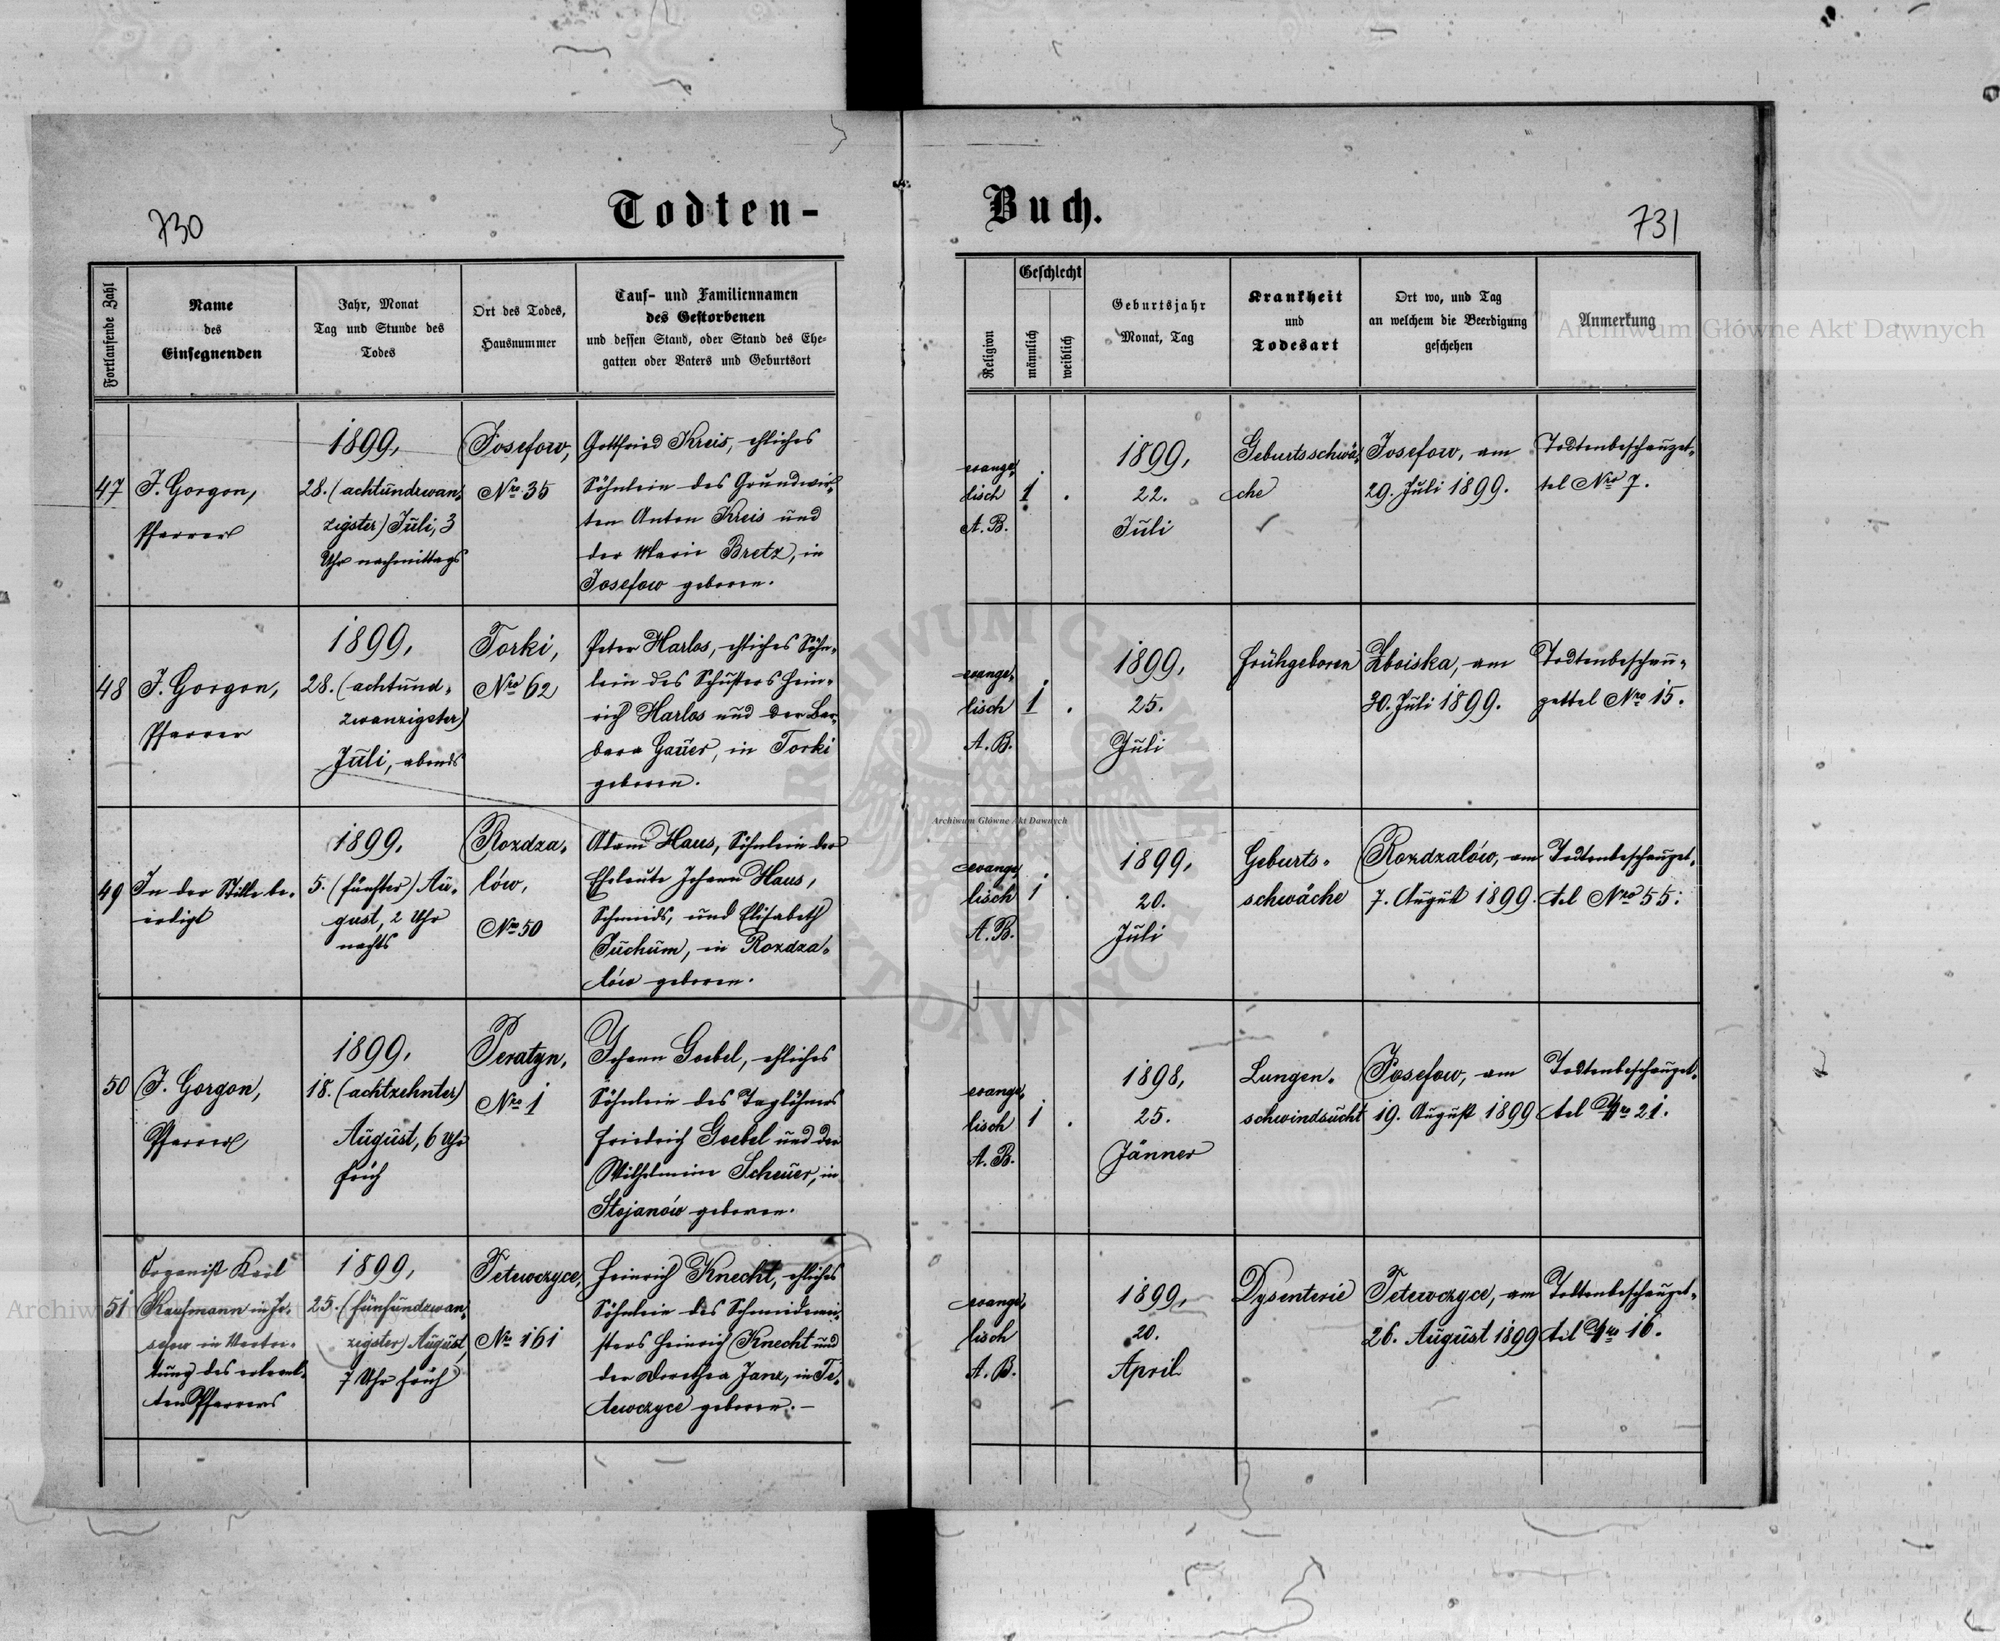 730
Todten-
Buch.
731
Fortlaufende Zahl
Name
des
Einsegnenden
Jahr, Monat
Tag und Stunde des
Todes
Ort des Todes,
Hausnummer
Tauf- und Familiennamen
des Gestorbenen
und dessen Stand, oder Stand des Ehe-
gatten oder Vaters und Geburtsort
Religion
Geschlecht
männlich
weiblich
Geburtsjahr
Monat, Tag
Krankheit
und
Todesart
Ort wo, und Tag
an welchem die Beerdigung
geschehen
Anmerkung
Archiwum Główne Akt Dawnych
47
J. Gorgon,
Pfarrer
1899,
28. (achtundzwan-
zigster) Juli, 3
Uhr nachmittags
Josefow,
Nro 35
Gottfried Kreis, ehliches
Söhnlein des Grundwir-
ten Anton Kreis und
der Marie Bretz, in
Josefow geboren.
evange-
lisch
A. B.
1
.
1899,
22.
Juli
Geburtsschwä-
che
Josefow, am
29. Juli 1899.
Todtenbeschauzet-
tel Nro 7.
48
J. Gorgon,
Pfarrer
1899,
28. (achtund-
zwanzigster)
Juli, abends
Torki,
Nro 62
Peter Harlos, ehliches Söhn-
lein des Schusters Hein-
rich Harlos und der Bar-
bara Gauer, in Torki
geboren.
evange-
lisch
A. B.
1
.
1899,
25.
Juli
Frühgeboren
Zboiska, am
30. Juli 1899.
Todtenbeschau-
zettel Nro 15.
49
In der Stille be-
erdigt
1899,
5. (fünfter) Au-
gust, 2 Uhr
nachts
Rozdza-
lów,
Nro 50
Adam Haus, Söhnlein der
Eheleute Johann Haus,
Schmids, und Elisabeth
Juchum, in Rozdza-
lów geboren.
evange-
lisch
A. B.
1
.
1899,
20.
Juli
Geburts-
schwäche
Rozdzalów, am
7. August 1899.
Todtenbeschauzet-
tel Nro 55.
Archiwum Główne Akt Dawnych
50
J. Gorgon,
Pfarrer
1899,
18. (achtzehnter)
August, 6 Uhr
früh
Peratyn,
Nro 1
Johann Goebel, ehliches
Söhnlein des Taglöhners
Friedrich Goebel und der
Wilhelmine Scheuer, in
Stojanów geboren.
evange-
lisch
A. B.
1
.
1898,
25.
Jänner
Lungen-
schwindsucht
Josefow, am
19. August 1899
Todtenbeschauzet-
tel Nro 21.
51
Organist Karl
Kaufmann in
in Vertre-
tung des
ten Pfarrers
1899,
25. (fünfundzwan-
zigster) August,
7 Uhr früh
Tetewczyce,
Nro 161
Heinrich Knecht, ehliches
Söhnlein des Schmidmei-
sters Heinrich Knecht und
der Dorothea Janz, in Te-
tewczyce geboren.-
evange-
lisch
A. B.
1899,
20.
April
Dysenterie
Tetewczyce, am
26. August 1899
Todtenbeschauzet-
tel Nro 16.